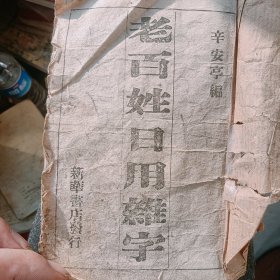 辛安亭編
老百姓日用雜字
新華書店發行